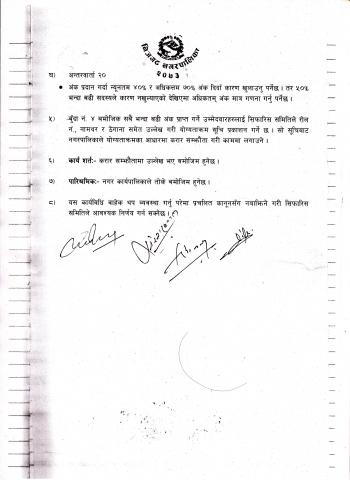 जिजगढ नगरपालिका
२०७३
घ) अन्तरवार्ता २०
• अंक प्रदान गर्दा न्यूनतम ४०% र अधिकतम ७०% अंक दिवाँ कारण खुलाउनु पर्नेछ । तर ५०%
भन्दा बढी सदस्यले कारण नखुलाएको देखिएमा अधिकतम् अंक मात्र गणना गर्नु पर्नेछ ।
५) बुँदा नं. ४ बमोजिम सबै भन्दा बढी अंक प्राप्त गर्ने उम्मेदवारहरुलाई सिफारिस समितिले रोल
नं., नामथर र ठेगाना समेत उल्लेख गरी योग्यताक्रम सूचि प्रकाशन गर्ने छ । सो सूचिबाट
नगरपालिकाले योग्यताक्रमका आधारमा करार सम्झौता गरी काममा लगाउने ।
६) कार्य शर्त:- करार सम्झौतामा उल्लेख भए बमोजिम हुनेछ ।
७) पारिश्रमिक:- नगर कार्यपालिकाले तोके बमोजिम हुनेछ ।
८) यस कार्यविधि बाहेक थप व्यवस्था गर्नु परेमा प्रचलित कानुनसँग नबाझिने गरी सिफारिस
समितिले आवश्यक निर्णय गर्न सक्नेछ ।